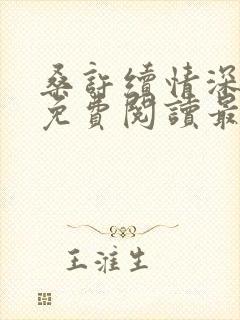 桑許續情深
免費閱讀最
王淮生